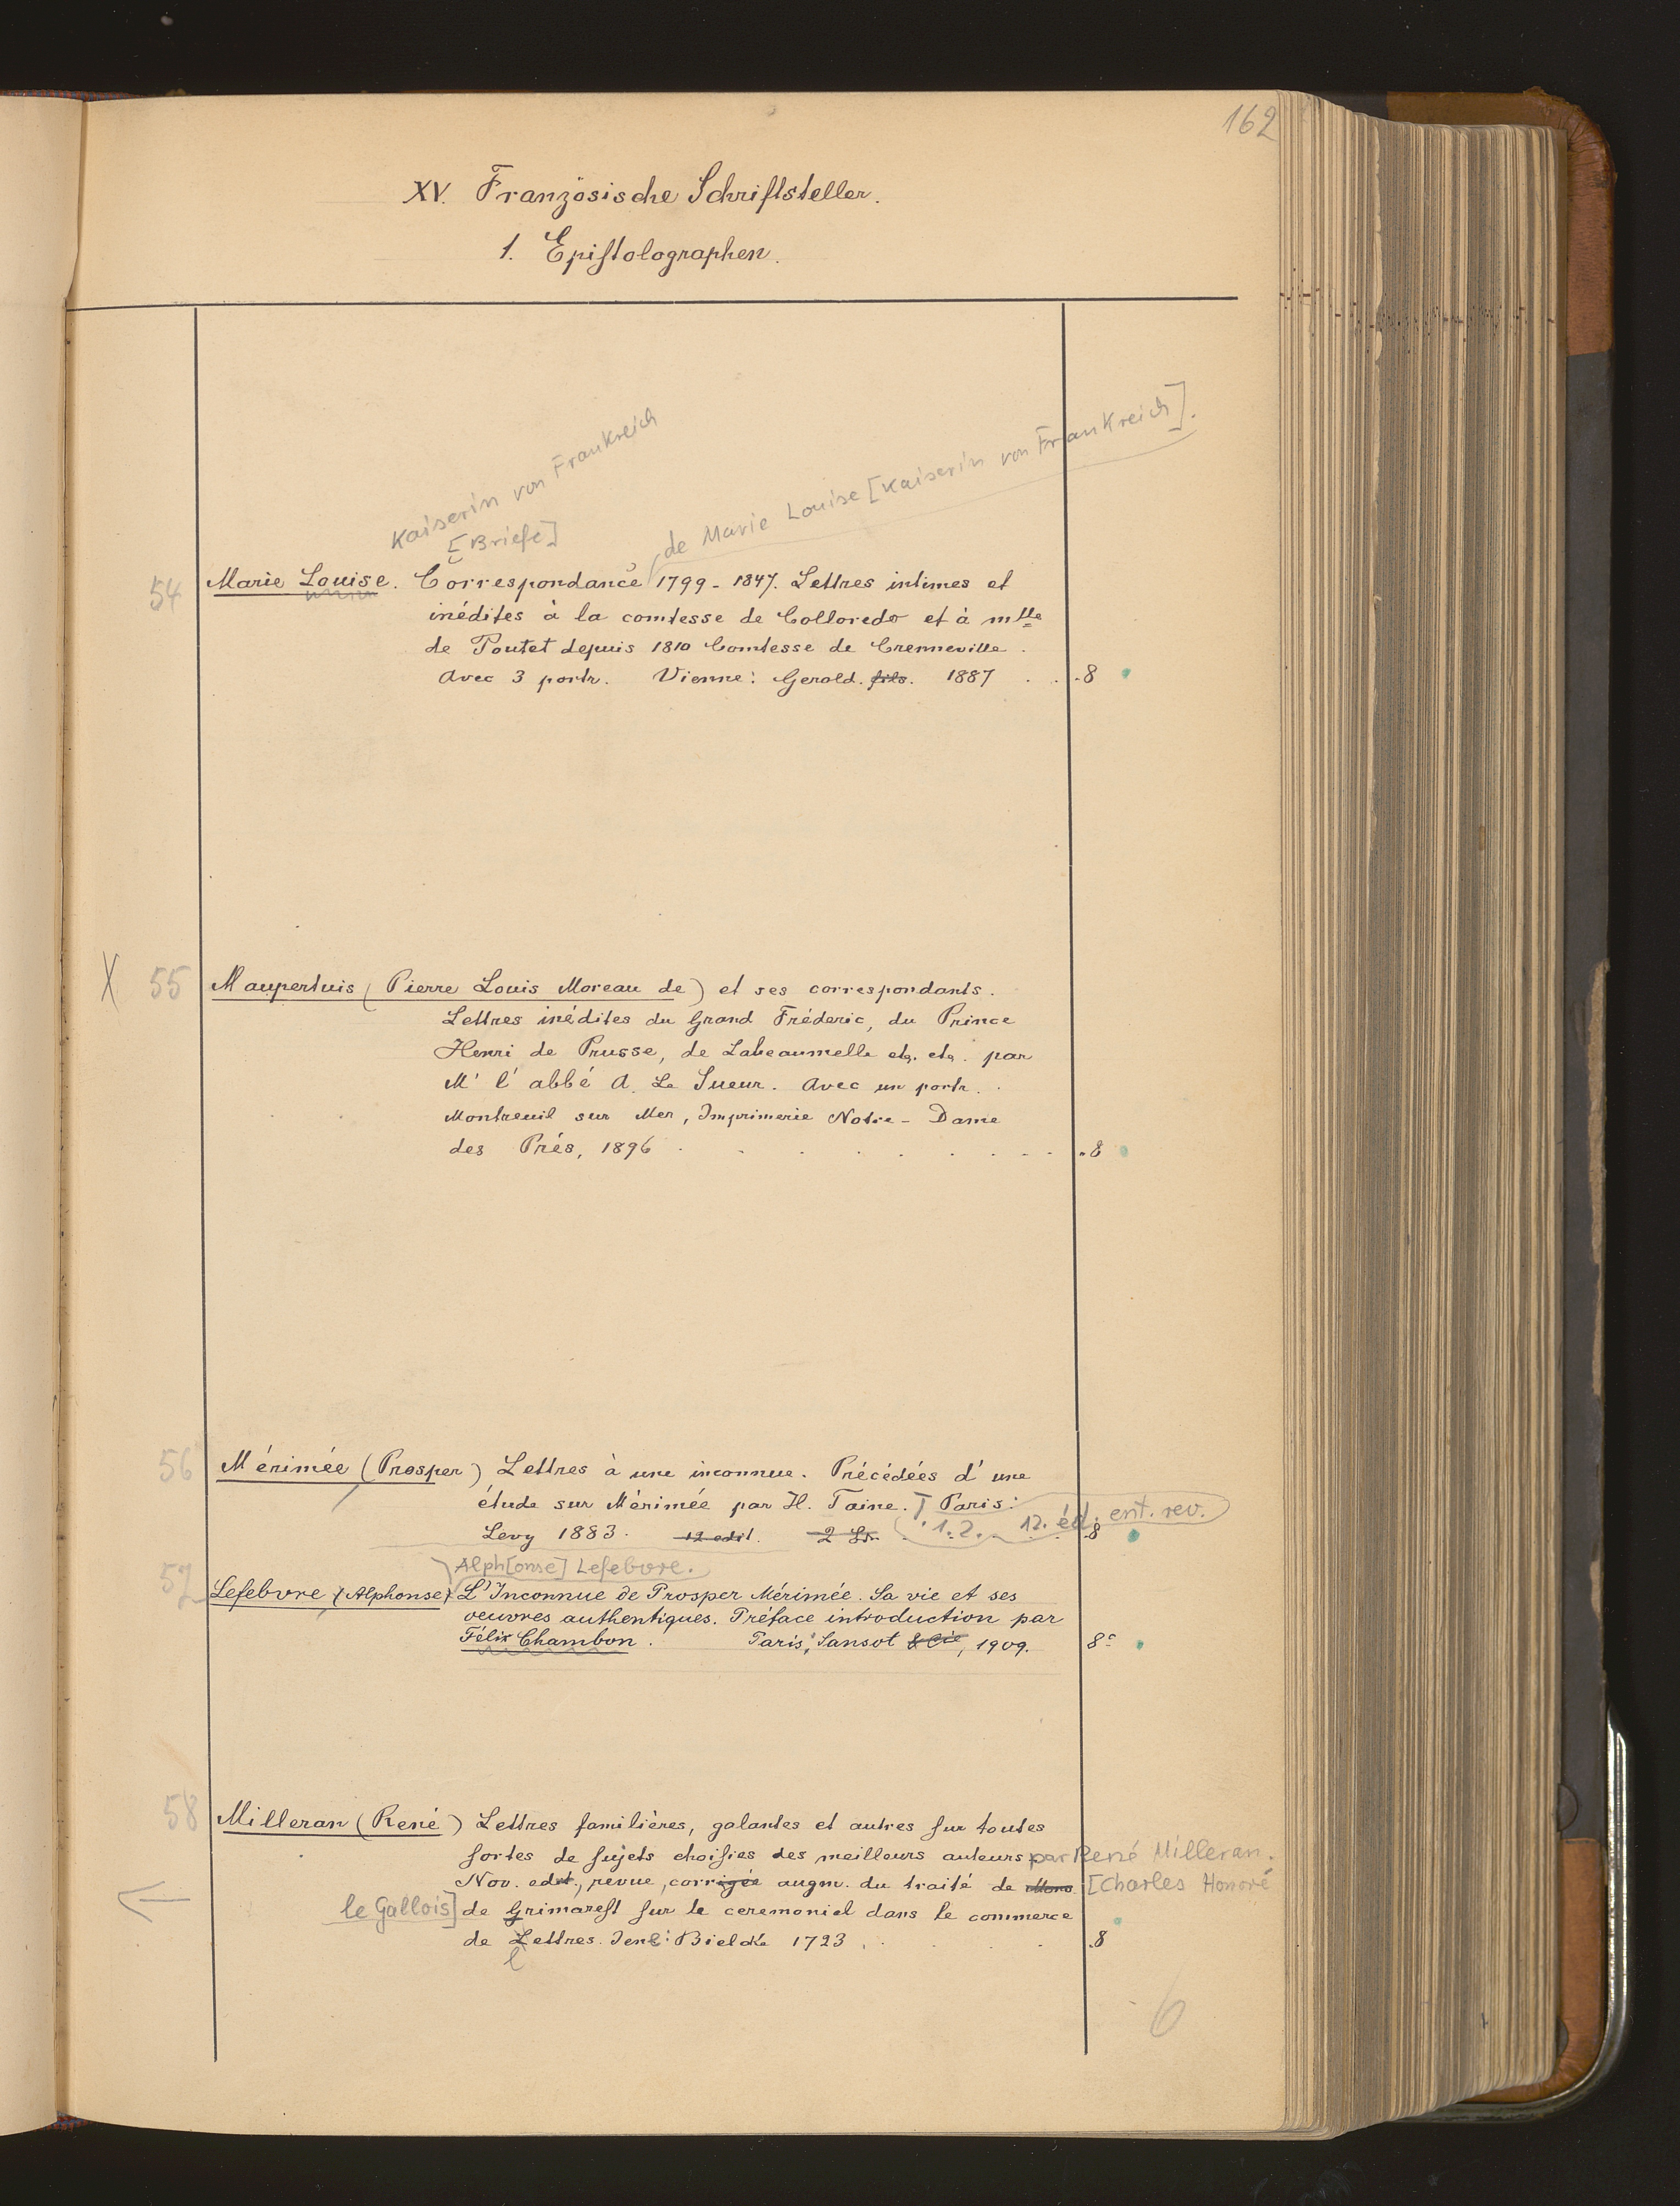 162
XV. Französische Schriftsteller.
1. Epistolographen.
Kaiserin von Frankreich
[Briefe]
de Marie Louise [Kaiserin von Frankreich].
54 Marie Louise. Correspondance 1799-1847. Lettres intimes et
inédites à la comtesse de Colloredo et à mlle
de Poutet depuis 1810 Comtesse de Crenneville.
Avec 3 portr. Vienne: Gerold. fils. 1887 . . . 8
X 55 Maupertuis (Pierre Louis Moreau de) et ses correspondants.
Lettres inédites du Grand Fréderic, du Prince
Henri de Prusse, de Labeaumelle etc. etc. par
M' l'abbé A. Le Sueur. Avec un portr.
Montreuil sur Mer, Imprimerie Notre-Dame
des Prés, 1896 . . . . . . . . 8
56 Mérimée (Prosper) Lettres à une inconnue. Précédées d'une
étude sur Mérimée par H. Taine. T Paris:
.1.2. 12. éd. ent. rev.
Levy 1883. 12 edit. 2 Bde. 8
Alph[onse] Lefebvre.
57 Lefebvre (Alphonse) L'Inconnue de Prosper Mérimée. Sa vie et ses
oeuvres authentiques. Préface introduction par
Félix Chambon. Paris: Sansot & Cie, 1909. 8°
58 Milleran (René) Lettres familières, galantes et autres sur toutes
sortes de sujets choisies des meilleurs auteurs par René Milleran.
Nov. edit., revue, corrigée augm. du traité de Mons. [Charles Honoré
le Gallois] de Grimarest sur le ceremoniel dans le commerce
de Lettres. Jene: Bielcke 1723 . . . . 8
l
6